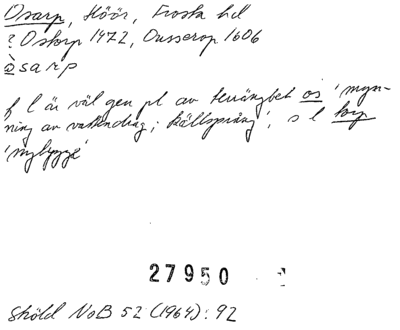 Osarp, Höör, Frosta hd
? Oskorp 1472, Ousserop 1606
òsarp
f l är väl gen pl av terrängbet os 'myn-
ning av vattendrag; källsprång', s l torp
'nybygge'
27950
Sköld NoB 52 (1964): 92